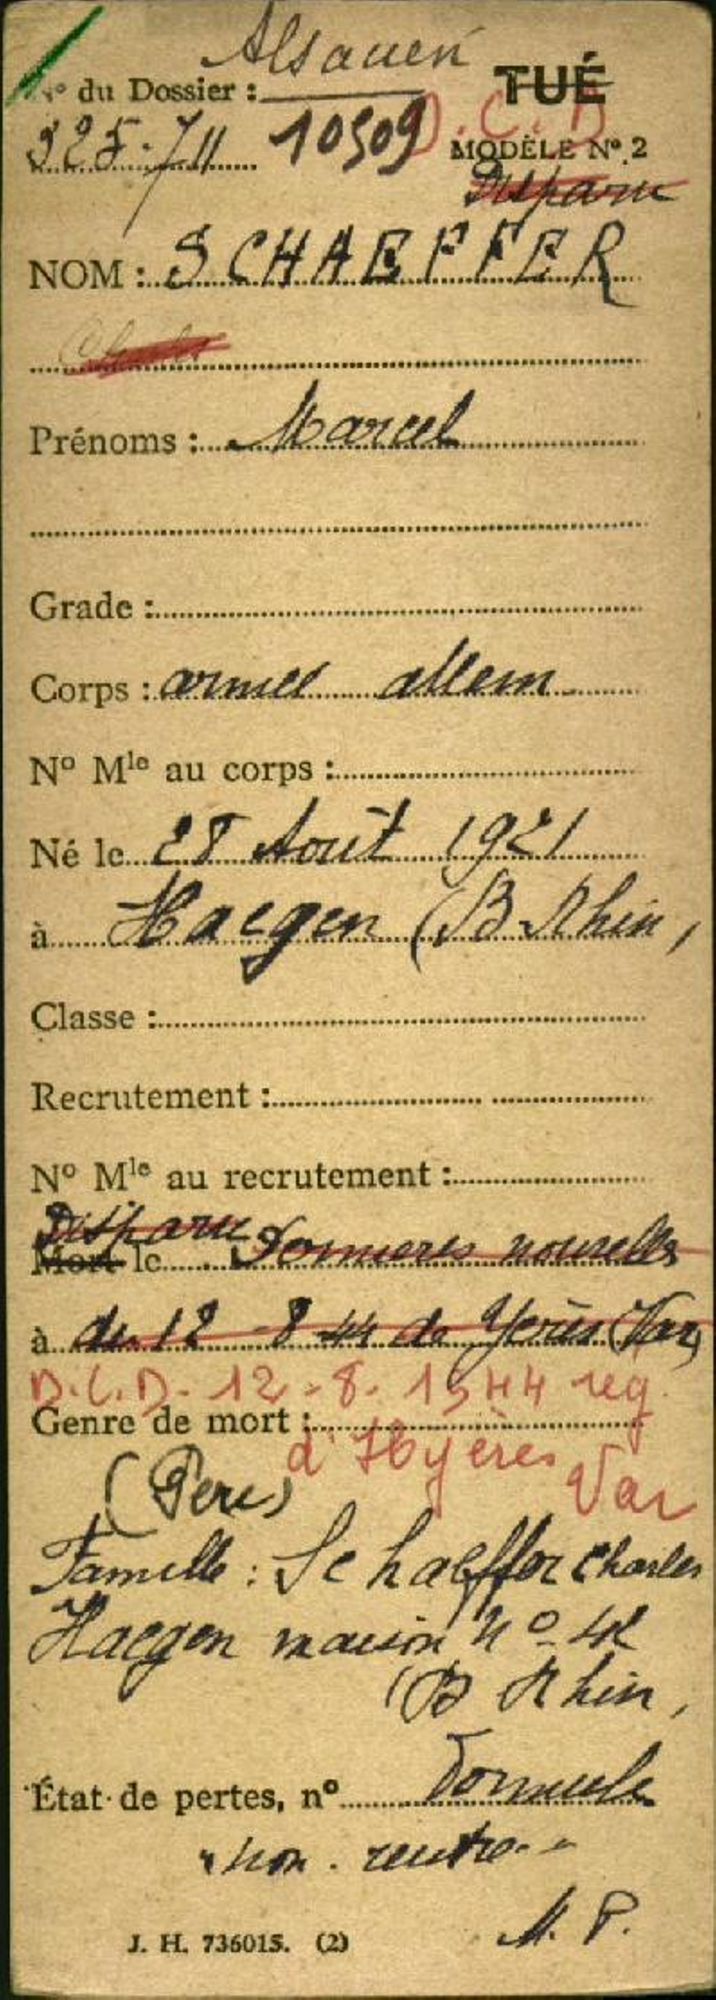 Alsacien
N° du Dossier :
TUÉ
325-711 10509
D.C.D
MODÈLE N° 2
Disparu
NOM : SCHAEFFER
Charles
Prénoms : Marcel
Grade :
Corps : armée allem
N° Mle au corps :
Né le 28 Août 1921
à Haegen (B Rhin,
Classe :
Recrutement :
N° Mle au recrutement :
Disparu
Mort le Dernieres nouvelles
à du 12 8 44 de Yeres (Var)
D.C.D. 12-8-1944 reg.
Genre de mort :
d'Hyères Var
(Pere)
Famille : Schaeffer Charles
Haegen maison N° 42
(B Rhin,
État de pertes, n° Formule
"non. rentré"
M. P.
J. H. 736015. (2)